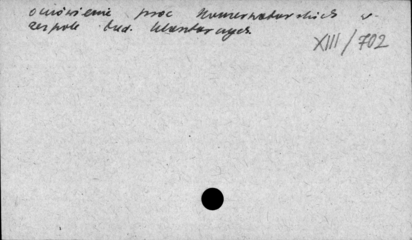 omówienie prac konserwatorskich w
zespole bud. klasztornych
XIII/702